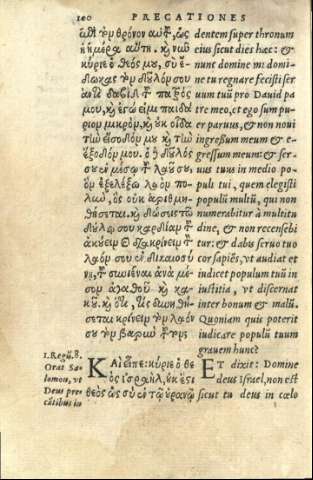 100 PRECATIONES
ἐπὶ τὸν θρόνον αὐτοῦ, ὡς
ἡ ἡμέρα αὕτη. καὶ νῦν
κύριε ὁ θεός μου, σὺ ἔ-
δωκας τὸν δοῦλόν σου
ἀντὶ δαβὶδ τοῦ πατρός
μου, καὶ ἐγώ εἰμι παιδά
ριον μικρόν, καὶ οὐκ οἶδα
τὴν εἴσοδόν μου καὶ τὴν
ἔξοδόν μου. ὁ δὲ δοῦλός
σου ἐν μέσῳ τοῦ λαοῦ σου,
ὃν ἐξελέξω λαὸν πο
λὺν, ὃς οὐκ ἀριθμη
θήσεται. καὶ δώσεις τῷ
δούλῳ σου καρδίαν τοῦ
ἀκούειν διακρίνειν τὸν
λαόν σου ἐν δικαιοσύ
νῃ, τοῦ συνιέναι ἀνὰ μέ-
σον ἀγαθοῦ καὶ κα-
κοῦ. καὶ ὅτι τίς δυνήθη
σεται κρίνειν τὸν λαόν
σου τὸν βαρὺν τοῦτον;
ΚΑὶ εἶπε· κύριε ὁ θε
ὸς ἰσραὴλ, οὐκ ἔστι
θεὸς ὡς σὺ ἐν τῷ οὐρανῷ
dentem super thronum
eius sicut dies hæc: &
nunc domine mi domi-
ne tu regnare fecisti ser
uum tuũ pro Dauid pa
tre meo, et ego sum pu-
er paruus, & non noui
ingressum meum & e-
gressum meum: & ser-
uus tuus in medio po-
puli tui, quem elegisti
populũ multũ, qui non
numerabitur à multitu
dine, & non recensebi
tur: & dabis seruo tuo
cor sapiẽs, vt audiat et
iudicet populum tuũ in
iustitia, vt discernat
inter bonum & malũ.
Quoniam quis poterit
iudicare populũ tuum
grauem hunc?
ET dixit: Domine
deus Israel, non est
sicut tu deus in cœlo
1. Regũ. 8.
Orat Sa-
lomon, vt
Deus pre
catibus in